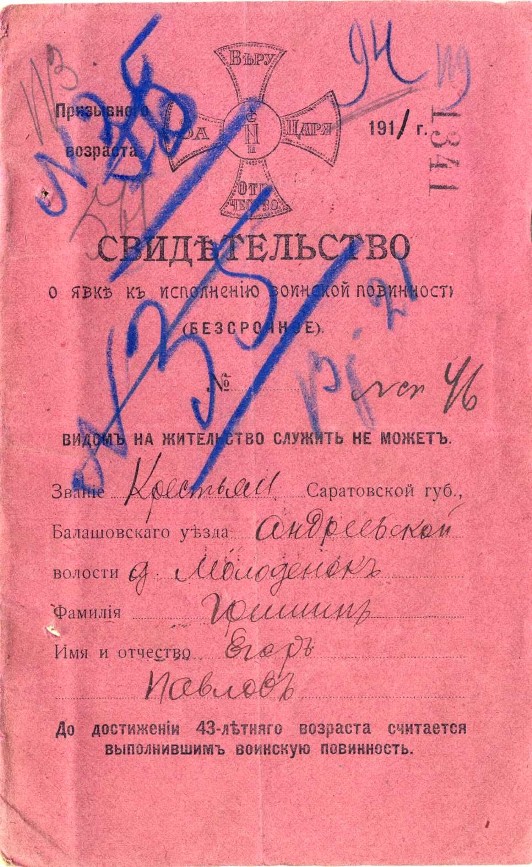 ВѢРУ
ЗА ЦАРЯ
ОТЕ
ЧЕСТВО
Призывного
возраста
1911 г.
94
113
1341
№ 35
СВИДѢТЕЛЬСТВО
О ЯВКѢ КЪ ИСПОЛНЕНІЮ ВОИНСКОЙ ПОВИННОСТИ
(БЕЗСРОЧНОЕ).
№
№ 35
46
ВИДОМЪ НА ЖИТЕЛЬСТВО СЛУЖИТЬ НЕ МОЖЕТЪ.
Званіе Крестьян Саратовской губ.,
Балашовскаго уѣзда Андреевской
волости д. Молоденокъ
Фамилія
Имя и отчество Егоръ
Павловъ
До достиженіи 43-лѣтняго возраста считается
выполнившимъ воинскую повинность.